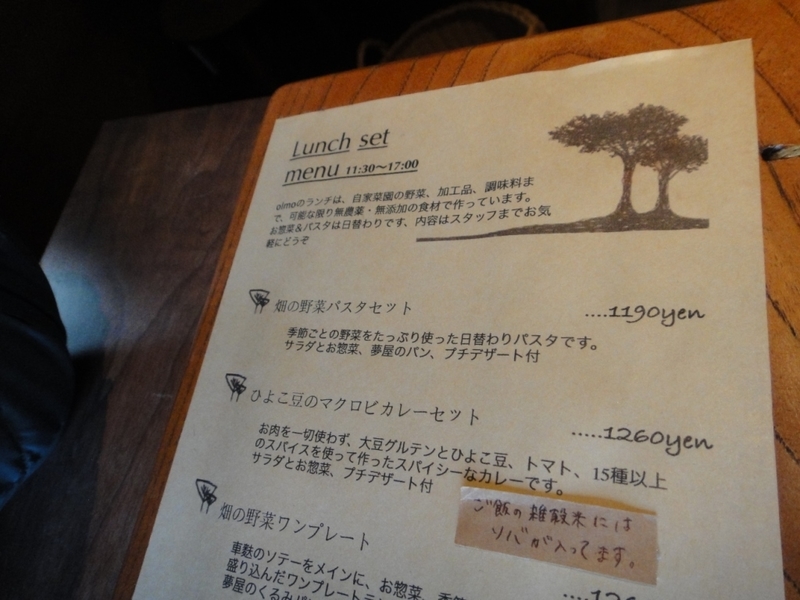 Lunch set
menu 11:30〜17:00
olmoのランチは、自家菜園の野菜、加工品、調味料ま
で、可能な限り無農薬・無添加の食材で作っています。
お惣菜&パスタは日替わりです、内容はスタッフまでお気
軽にどうぞ
畑の野菜パスタセット ....1190yen
季節ごとの野菜をたっぷり使った日替わりパスタです。
サラダとお惣菜、夢屋のパン、プチデザート付
ひよこ豆のマクロビカレーセット .....1260yen
お肉を一切使わず、大豆グルテンとひよこ豆、トマト、15種以上
のスパイスを使って作ったスパイシーなカレーです。
サラダとお惣菜、プチデザート付
ご飯の雑穀米には
ソバが入ってます。
畑の野菜ワンプレート
車麩のソテーをメインに、お惣菜、季節
盛り込んだワンプレート
夢屋のくるみパン